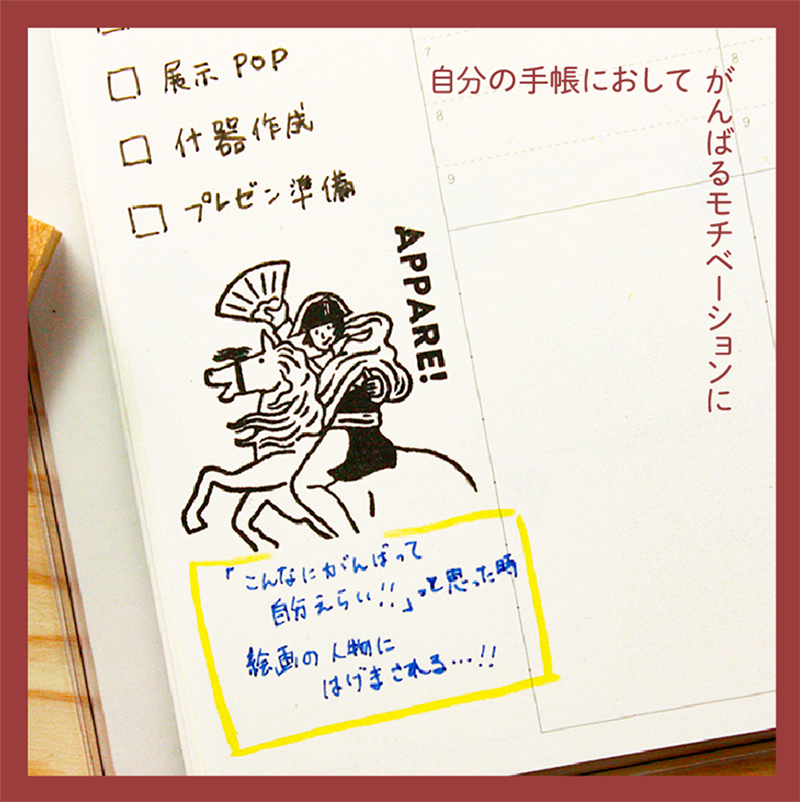 自分の手帳におして
がんばるモチベーションに
7
8
9
8
9
展示POP
什器作成
プレゼン準備
APPARE!
「こんなにがんばって
自分えらい!!」って思った時
絵画の人物に
はげまされる…!!